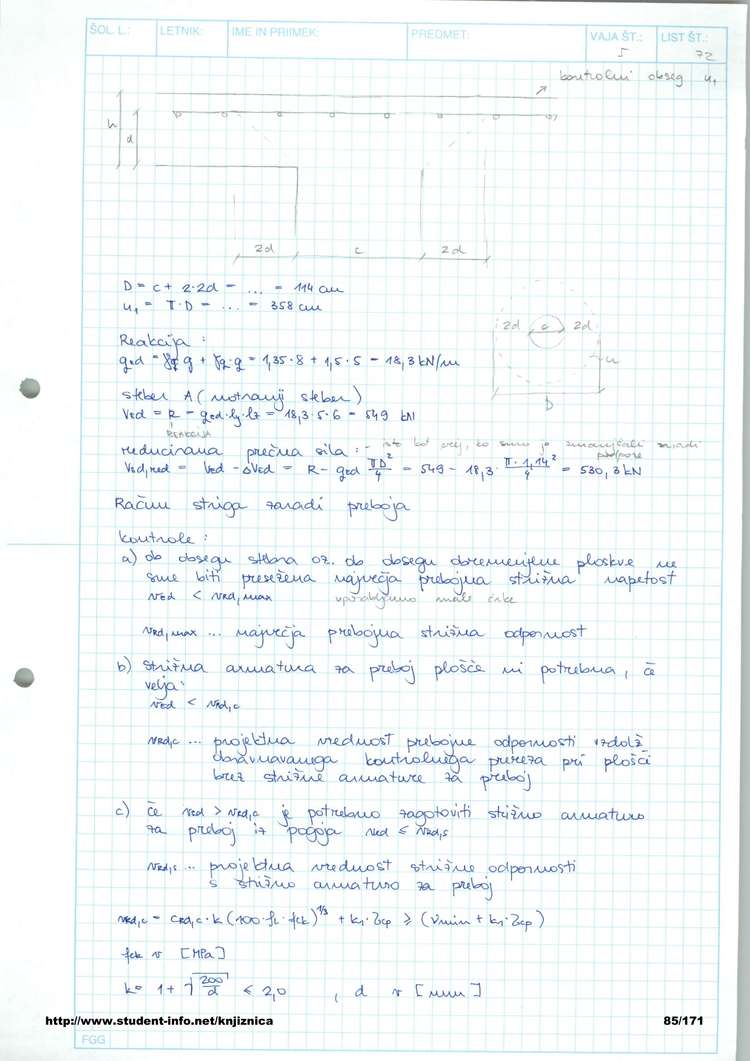 ŠOL. L.: LETNIK: IME IN PRIIMEK: PREDMET: VAJA ŠT.: 5 LIST ŠT.: 72
kontrolni obseg u₁
h
d
2d c 2d
D = c + 2·2d = ... = 114 cm
u₁ = π·D = ... = 358 cm
2d c 2d
u
D
Reakcija :
q_ed = γg g + γq·q = 1,35·8 + 1,5·5 = 18,3 kN/m
steber A (notranji steber)
V_Ed = R = q_Ed·ly·lz = 18,3·5·6 = 549 kN
REAKCIJA
reducirana prečna sila : - isto kot prej, ko smo jo zmanjšali zaradi
podpore
V_Ed,red = V_Ed - ΔV_Ed = R - q_Ed πD²/4 = 549 - 18,3· π·1,14²/4 = 530,3 kN
Račun striga zaradi preboja
kontrole :
a) ob obsegu stebra oz. ob obsegu obremenjene ploskve ne
sme biti presežena največja prebojna strižna napetost
v_Ed < v_Rd,max uporabljamo male črke
v_Rd,max ... največja prebojna strižna odpornost
b) strižna armatura za preboj plošče ni potrebna, če
velja:
v_Ed < v_Rd,c
v_Rd,c ... projektna vrednost prebojne odpornosti vzdolž
obravnavanega kontrolnega prereza pri plošči
brez strižne armature za preboj
c) če v_Ed > v_Rd,c je potrebno zagotoviti strižno armaturo
za preboj iz pogoja v_Ed ≤ v_Rd,s
v_Rd,s ... projektna vrednost strižne odpornosti
s strižno armaturo za preboj
v_Rd,c = C_Rd,c·k (100·ρl·fck)^1/3 + k₁·σcp ≥ (vmin + k₁·σcp)
fck v [MPa]
k = 1 + √200/d ≤ 2,0 , d v [mm]
http://www.student-info.net/knjiznica 85/171
FGG